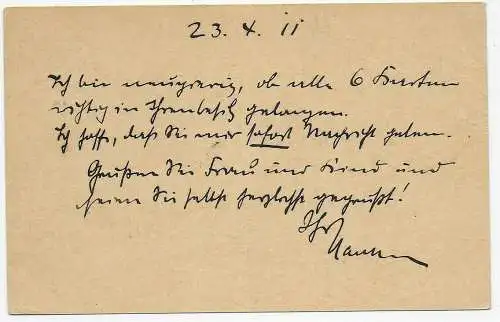 23. 4. 11
Ich bin neugierig, ob alle 6 Karten
richtig in Ihren besitz gelangen.
Ich hoffe, daß Sie mir sofort Nachricht geben.
Grüßen Sie Frau und Kind und
seien Sie selbst herzlichst gegrüßt!
Ihr